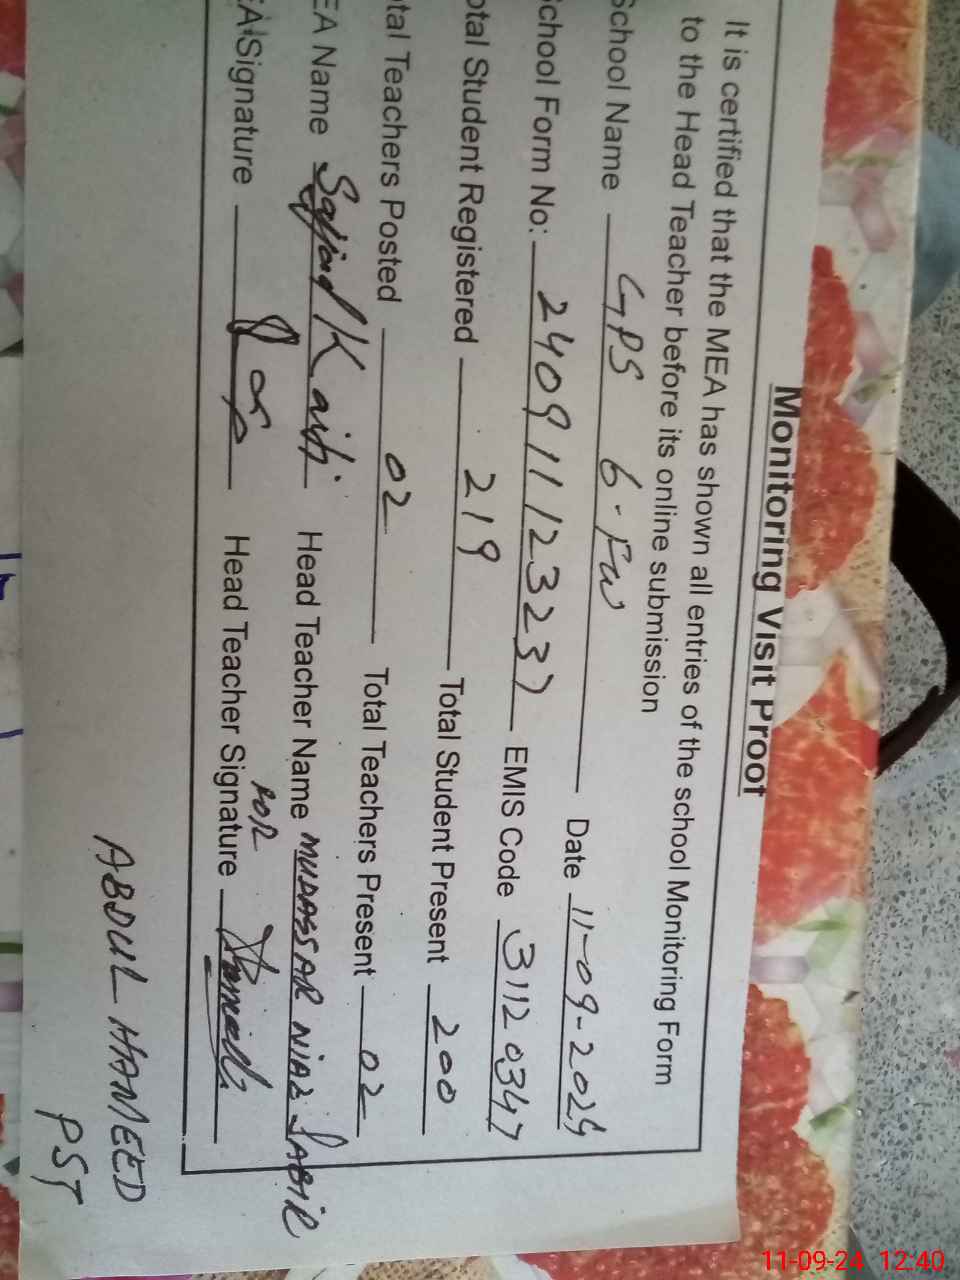 Monitoring Visit Proof
It is certified that the MEA has shown all entries of the school Monitoring Form
to the Head Teacher before its online submission
School Name GPS 6-FW Date 11-09-2024
School Form No: 2409111232 37 EMIS Code 31120347
otal Student Registered 219 Total Student Present 200
otal Teachers Posted 02 Total Teachers Present 02
EA Name Sajjad Head Teacher Name MUDASSAR NIAZ SABIR
EA Signature Head Teacher Signature FOR
ABDUL HAMEED
PST
11-09-24 12:40